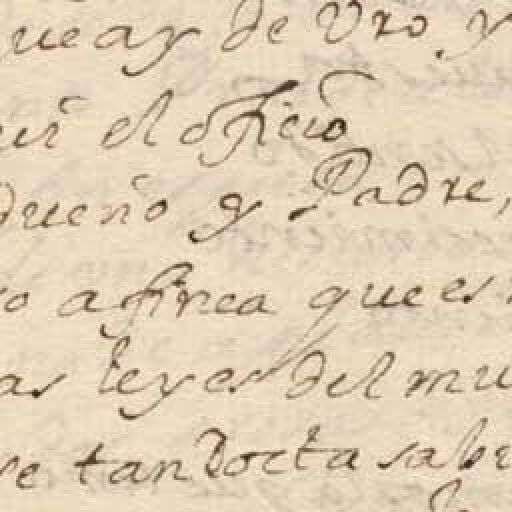 que ay de Vro. y
el oficio
dueño y Padre,
ro a finca que es
as leyes del mu
re tan docta sabi